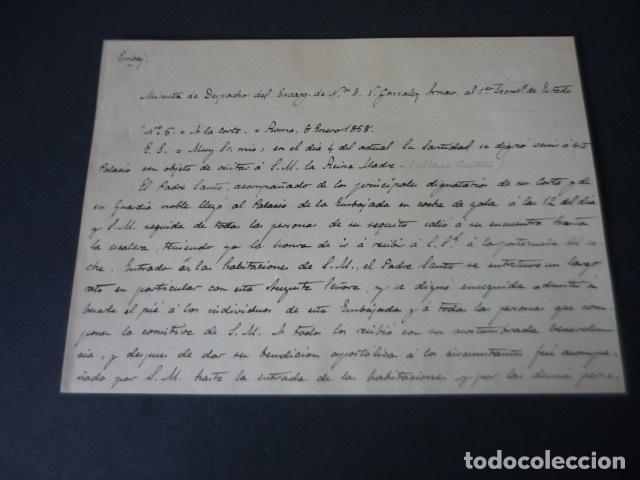 Embaj.
Minuta de Despacho del Encarg. de N.os D. V. Gonzalez Arnao, al 1er Secret.o de Estado
"N.o 5. = A la Corte. = Roma, 8 Enero 1858.
E. S. = Muy Sr. mio: en el dia 4 del actual Su Santidad se dignó venir á este
Palacio con objeto de visitar á S.M. la Reina Madre.
El Padre Santo, acompañado de los principales dignatarios de su Corte y de
su Guardia noble llegó al Palacio de la Embajada en coche de gala á las 12 del dia
y S.M. seguida de todas las personas de su sequito salió á su encuentro hasta
la escalera, teniendo yo la honra de ir á recibir á S.Sd. á la portezuela del co-
che. Entrado en las habitaciones de S.M., el Padre Santo se entretuvo un largo
rato en particular con esta Augusta Señora, y se dignó enseguida admitir á
besarle el pié á los individuos de esta Embajada y á toda la persona que com-
ponen la comitiva de S.M. A todos los recibió con su acostumbrada benevolen-
cia, y despues de dar su bendicion apostólica á los circunstantes fué acompa-
ñado por S.M. hasta la entrada de las habitaciones y por las demas perso-
todocoleccion.net